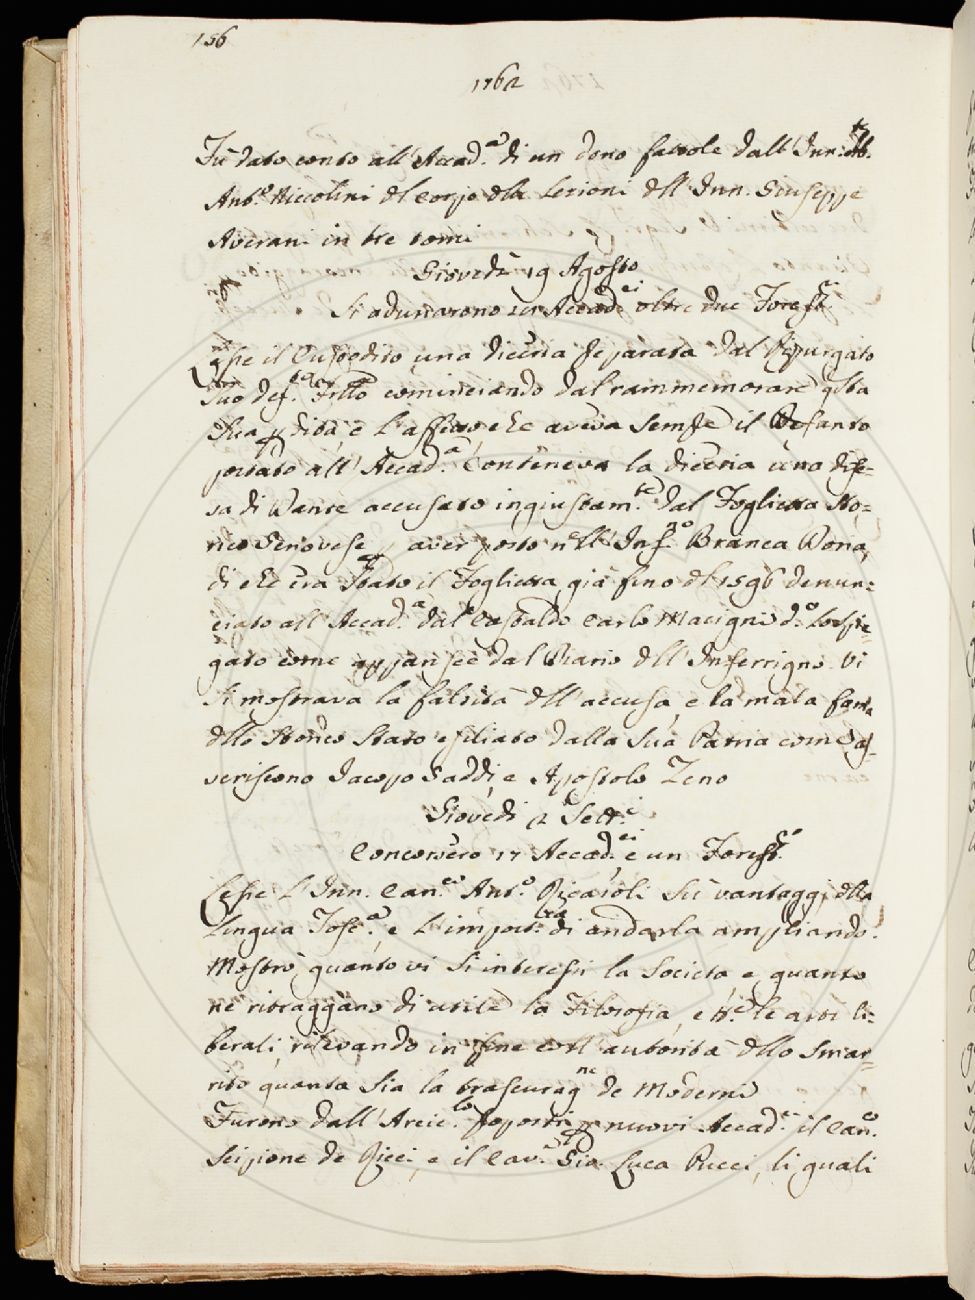 156
1762
Fù dato conto all'Accad.a di un dono fattole dall'Inn:
Ant.o Niccolini del corpo dlle Lezioni dell'Inn. Giuseppe
Averani in tre tomi
Giovedì 19 Agosto
Si adunarono Accad.ei oltre due Forest.i
Lesse il una diceria preparata dal Ripurgato
suo def.to cominciando dal rammemorare qsta
sua pdita, e l'affetto che aveva sempre il Defunto
portato all'Accad.a Conteneva la diceria una dife-
sa di Dante accusato ingiustam.te dal Foglietta Sto=
rico Genovese p aver posto nell'Inf.no Branca Doria,
di che era stato il Foglietta già fino dl 1596 denun=
ciato all'Accad.a dal Castaldo Carlo Macigni d.o Lo Spie=
gato come apparisce dal Diario dll'Inferrigno. Vi
si mostrava la falsità dell'accusa, e la mala fama
dllo Storico stato esiliato dalla sua Patria come as=
seriscono Jacopo Gaddi, e Apostolo Zeno
Giovedì 2 Sett.e
Concorsero 17 Accad.ei e un Forest.o
Lesse l'Inn. Can.co Ant.o Ricasoli su' vantaggi dlla
Lingua Tosc.a, e l'import.za di andarla ampliando.
Mostrò quanto vi si interessi la Società e quanto
ne ritraggano di utile la Filosofia, e tt.e le arti li=
berali, rilevando in fine coll'autorità dllo Smar=
rito quanta sia la trascurag.ne de Moderni
Furono dall'Arcic.lo proposti p nuovi Accad.ci il Can.co
Scipione de Ricci, e il Cav.r Gio. Luca Pucci, li quali